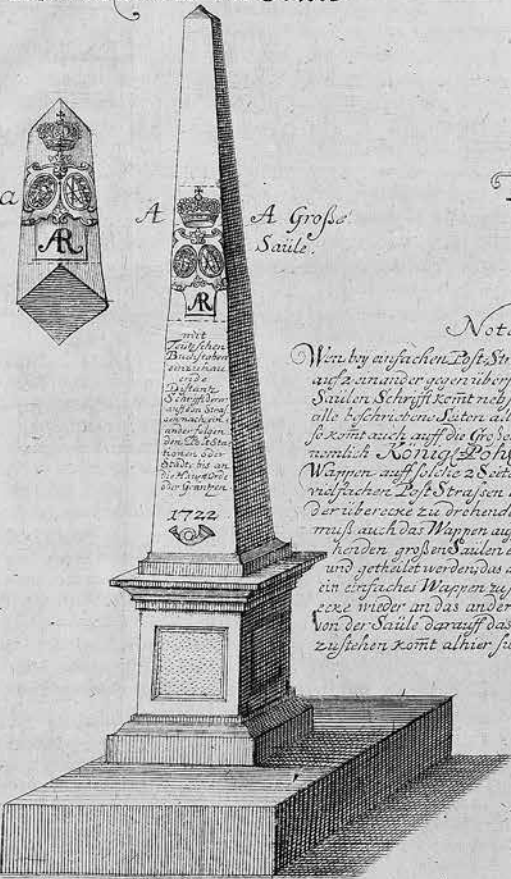 a
AR
A
A Große
Saüle.
AR
mit
Teütschen
Buchstaben
einzuhau
ende
Distantz
Schrifft derer
auf den Stras
sen nach ein
ander folgen
den Post Sta
tionen oder
Städte bis an
die Haupt Orte
oder Grentzen
1722
Nota
Wen bey einfachen Post-Str
auf 2 einander gegen über
Saülen Schrifft kom̅t neb
alle beschriebene Seiten all
so kom̅t auch auff die Große
nemlich König Pohl
Wappen auff solche 2 Seeten
vielfachen Post Strassen
der überecke zu drehende
muß auch das Wappen au
henden großen Saülen
und getheilet werden, das
ein einfaches Wappen zu
ecke wieder an das ander
von der Saüle darauff das
zustehen kom̅t alhier